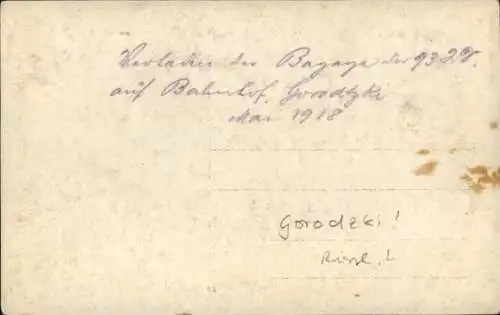 Verladen der Bagage der 93 J.D.
auf Bahnhof Gorodtzki
Mai 1918
Gorodzki!